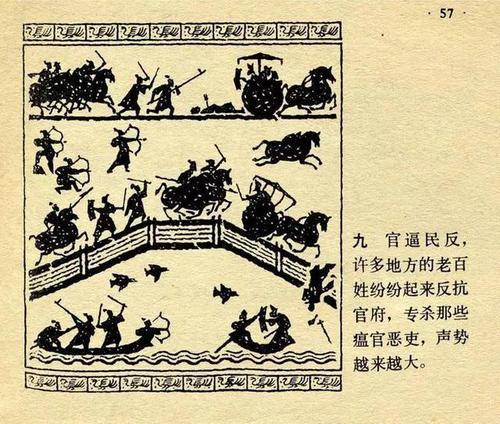 · 57 ·
九 官逼民反，
许多地方的老百
姓纷纷起来反抗
官府，专杀那些
瘟官恶吏，声势
越来越大。